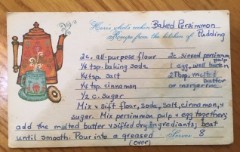 Here's what's cookin' Baked Persimmon
Recipe from the kitchen of Pudding
2 c. all-purpose flour 2 c. sieved persimmon pulp
½ tsp baking soda 1 egg, well beaten
½ tsp salt 2 Tbsp. melted butter
½ tsp cinnamon or margarine
½ c. sugar
Mix & sift flour, soda, salt, cinnamon, &
sugar. Mix persimmon pulp & egg together,
add the melted butter & sifted dry ingredients; beat
until smooth. Pour into a greased Serves 8
(over)